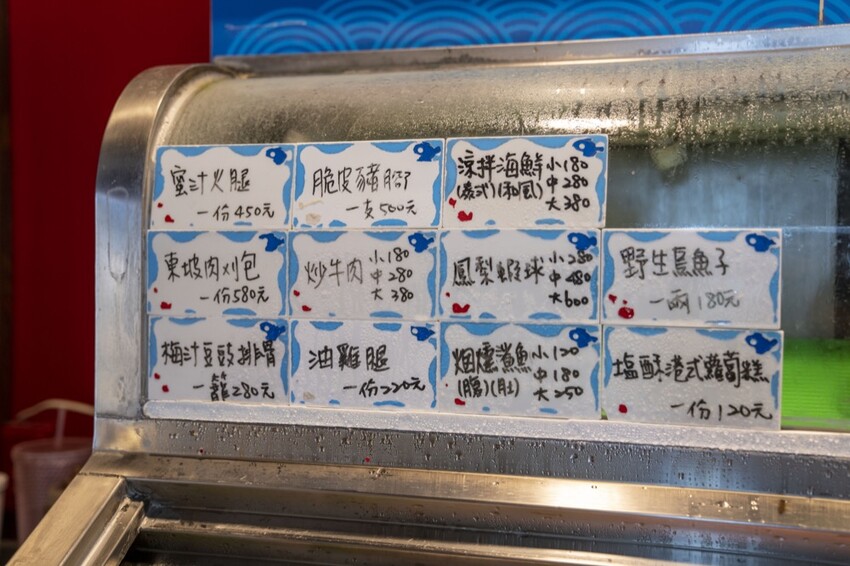 蜜汁火腿
一份450元
脆皮豬腳
一支500元
涼拌海鮮 小180
(泰式)(和風) 中280
大380
東坡肉刈包
一份580元
炒牛肉 小180
中280
大380
鳳梨蝦球 小280
中480
大600
野生烏魚子
一兩180元
梅汁豆豉排骨
一籠280元
油雞腿
一份220元
烟燻鯊魚 小120
(腸)(肚) 中180
大250
塩酥港式蘿蔔糕
一份120元